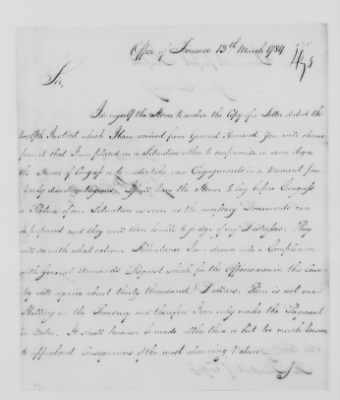 Office of Finance 13th March 1784
475
Sir,
I do myself the Honor to enclose the Copy of a Letter dated the
twelfth Instant which I have received from General Armand You will observe
from it that I am placed in a Situation either to compromise in some degree
the Honor of Congress or to undertake new Engagements in a moment
I shall have the Honor to lay before Congress
a Picture of our Situation as soon as the necessary Documents can
be prepared and they will then be able to judge of my Distresses. They
will see with what extreme Reluctance I am drawn into a Compliance
with general Armands Request which for the officers now in this Coun-
try will require about thirty thousand Dollars. There is not one
Shilling in the Treasury and therefore I can only make the Payment
in Notes. It must however be made altho there is but too much Reason
to apprehend Consequences of the most alarming Nature.